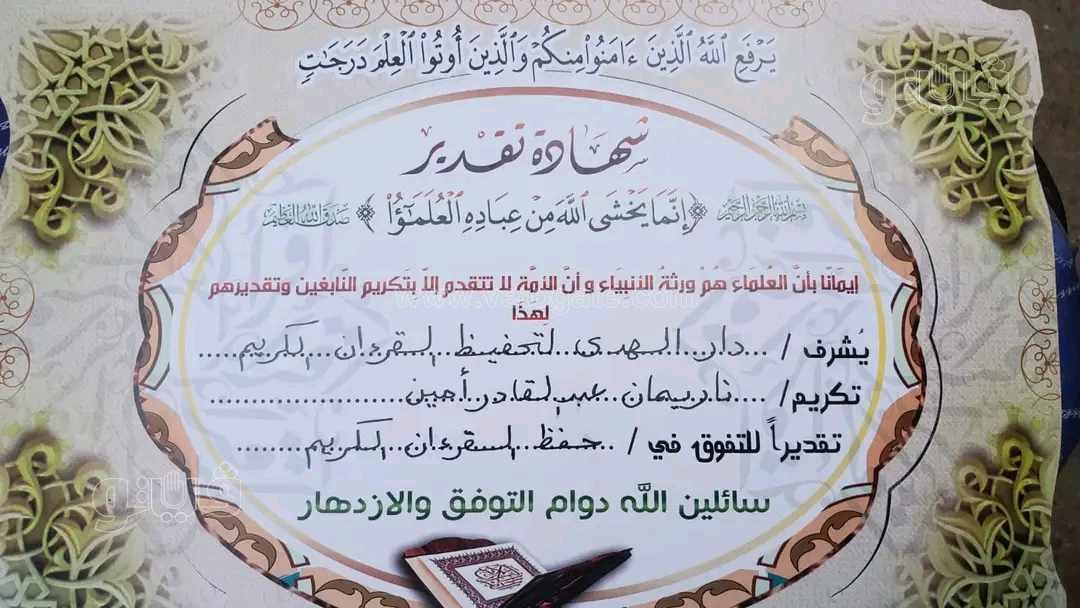 يَرْفَعِ اللَّهُ الَّذِينَ ءَامَنُوا مِنكُمْ وَالَّذِينَ أُوتُوا الْعِلْمَ دَرَجَٰتٍ
فيتو
شهادة تقدير
بسم الله الرحمن الرحيم ﴿إِنَّمَا يَخْشَى اللَّهَ مِنْ عِبَادِهِ الْعُلَمَٰٓؤُا﴾ صدق الله العظيم
إيمَانًا بأنَّ العلمَاءَ هُمْ ورثةُ الأنبيَاءِ وأنَّ الأمَّة لا تتقدم إلاَّ بتكريم النَّابغين وتقديرهم
www.vetogate.com
لِهَذَا
يُشرف / ...دار..الهدى..لتحفيظ..القرءان..الكريم.....
تكريم/ ....ناريمان..عبدالقادر..أمين....................
تقديراً للتفوق في / ..حفظ..القرءان..الكريم.........
فيتو
سائلين الله دوام التوفق والازدهار